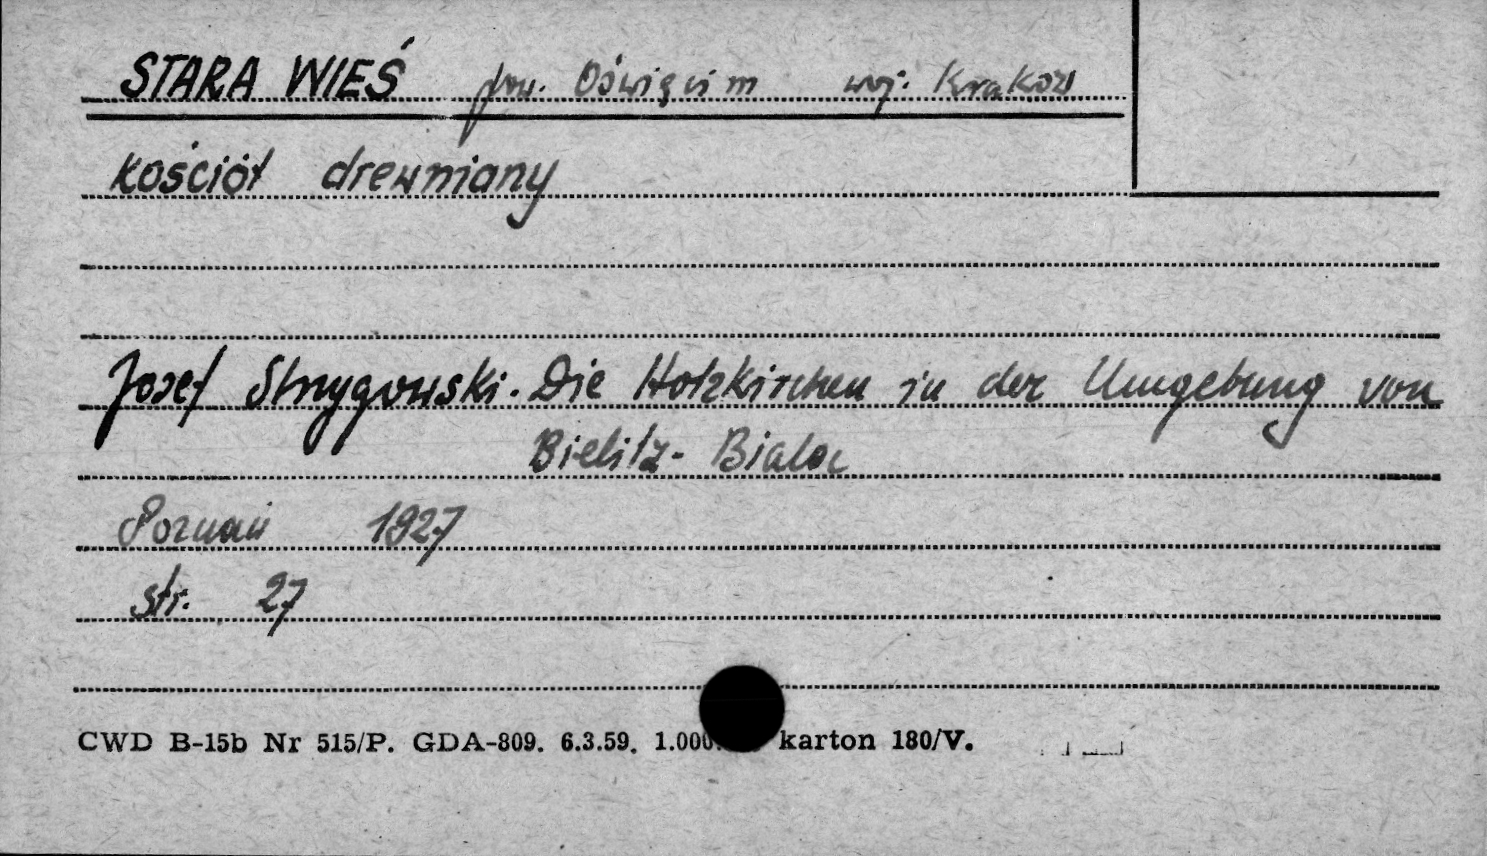 STARA WIEŚ pow. Oświęcim woj. Kraków
kościół drewniany
Josef Strzygowski. Die Holzkirchen in der Umgebung von
Bielitz-Biala
Poznań 1927
str. 27
CWD B-15b Nr 515/P. GDA-809. 6.3.59. karton 180/V.